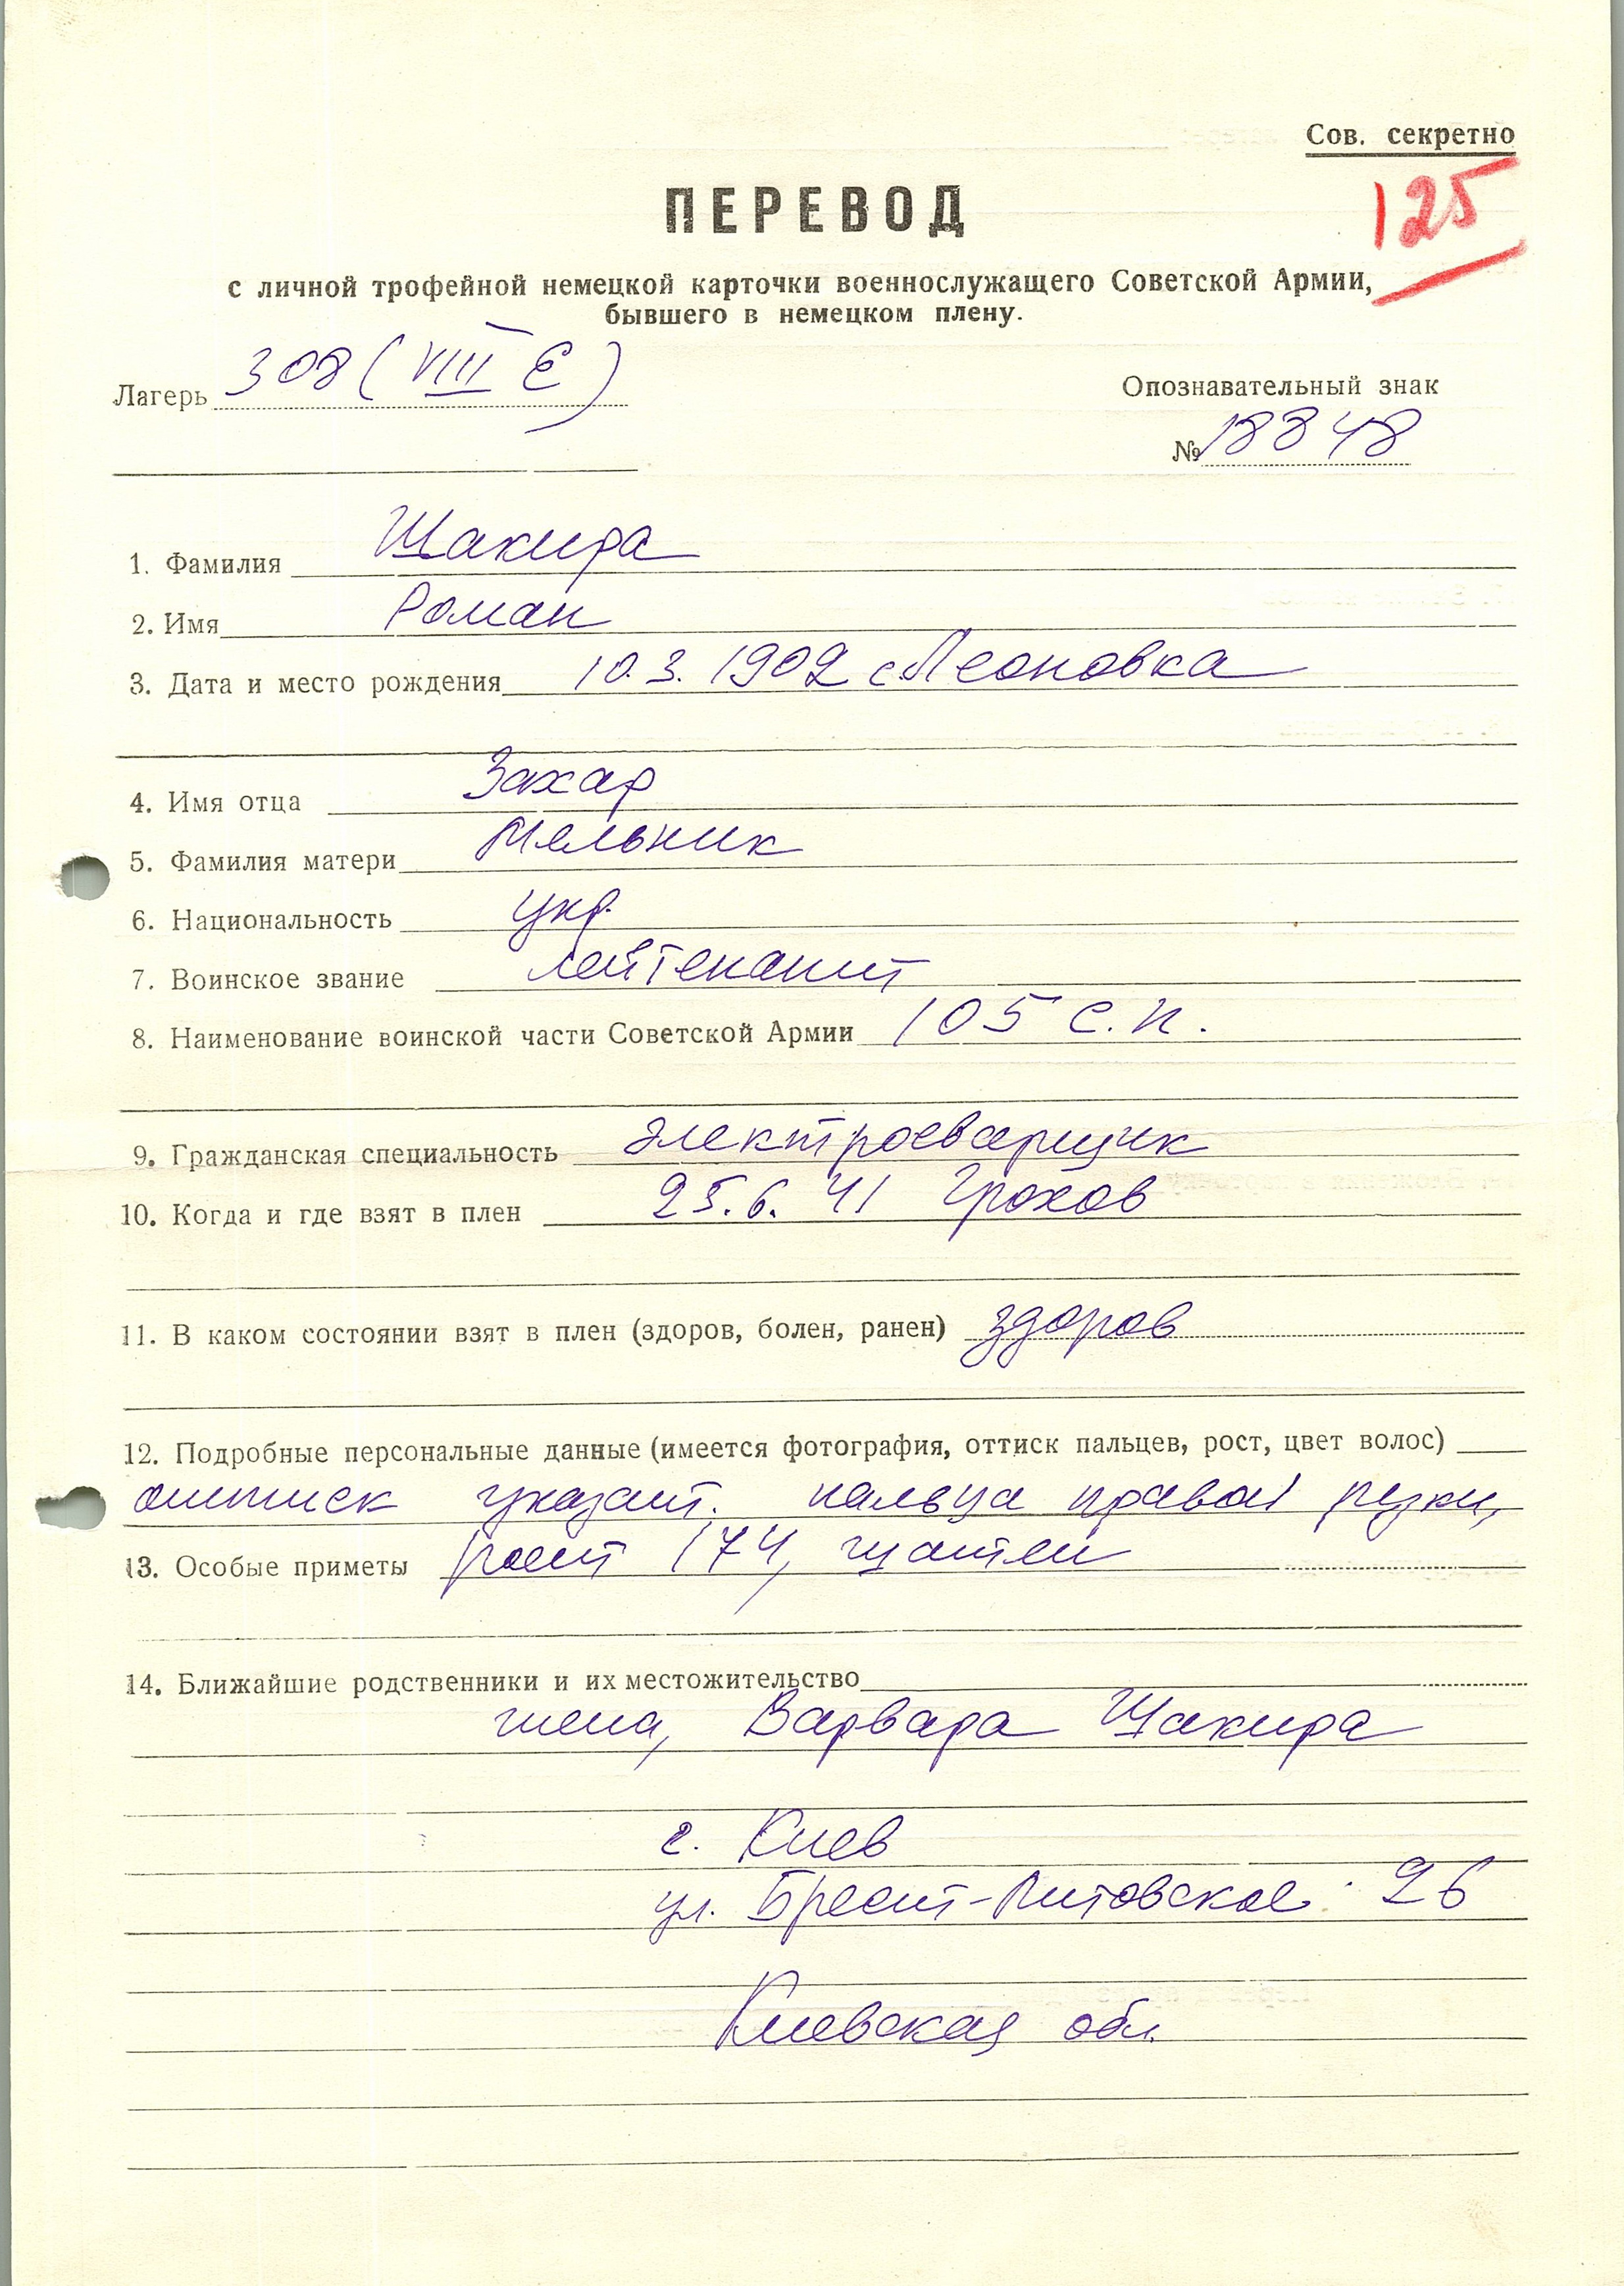 Сов. секретно
125
ПЕРЕВОД
с личной трофейной немецкой карточки военнослужащего Советской Армии,
бывшего в немецком плену.
Лагерь 308 (VIII E)
Опознавательный знак
№ 18848
1. Фамилия Щакира
2. Имя Роман
3. Дата и место рождения 10.3.1902 с. Леоновка
4. Имя отца Захар
5. Фамилия матери Мельник
6. Национальность укр.
7. Воинское звание лейтенант
8. Наименование воинской части Советской Армии 105 с.п.
9. Гражданская специальность электросварщик
10. Когда и где взят в плен 25.6.41 Грохов
11. В каком состоянии взят в плен (здоров, болен, ранен) здоров
12. Подробные персональные данные (имеется фотография, оттиск пальцев, рост, цвет волос)
оттиск указат. пальца правой руки,
13. Особые приметы рост 174, шатен
14. Ближайшие родственники и их местожительство
жена, Варвара Щакира
г. Киев
ул. Брест-Литовское 26
Киевская обл.